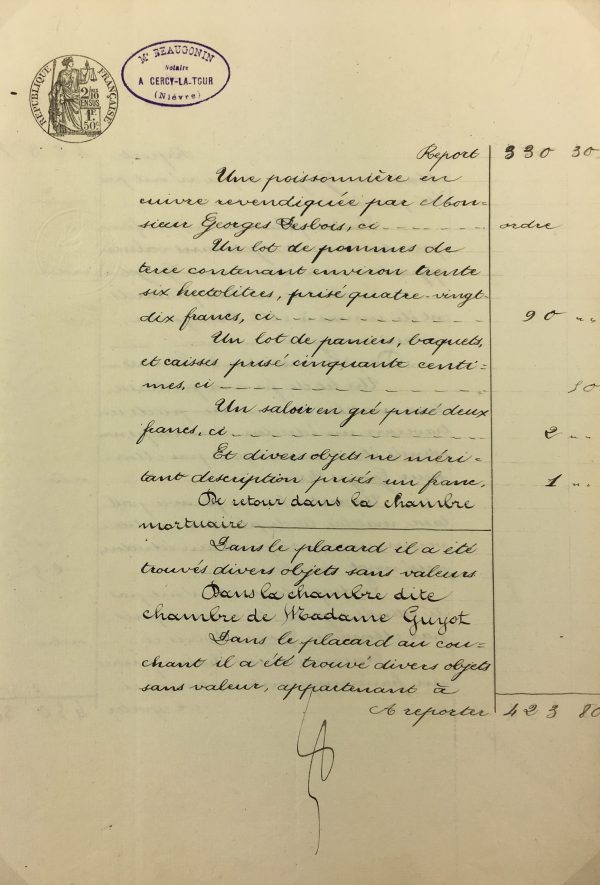 RÉPUBLIQUE FRANÇAISE
2/10 EN SUS
1F 50c
Me BEAUGONIN
Notaire
A CERCY-LA-TOUR
(Nièvre)
Report 330 30
Une poissonnière en
cuivre revendiquée par Mon=
sieur Georges Desbois, ci ordre
Un lot de pommes de
terre contenant environ trente
six hectolitres, prisé quatre-vingt
dix francs, ci 90 "
Un lot de paniers, baquets,
et caisses prisé cinquante centi=
mes, ci 50
Un saloir en gré prisé deux
francs, ci 2 "
Et divers objets ne méri=
tant description prisés un franc, 1 "
De retour dans la chambre
mortuaire
Dans le placard il a été
trouvés divers objets sans valeurs
Dans la chambre dite
chambre de Madame Guyot
Dans le placard au cou=
chant il a été trouvé divers objets
sans valeur, appartenant à
A reporter 423 80